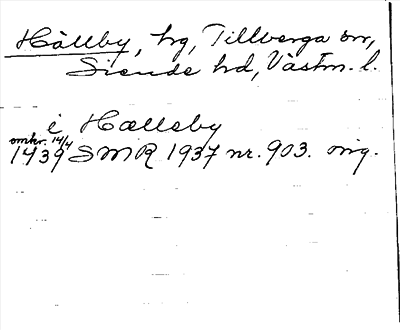 Hällby, hg, Tillberga sn,
Siende hd, Västm. l.
i Hælleby
omkr. 14/4
1439 SMR 1937 nr. 903. orig.